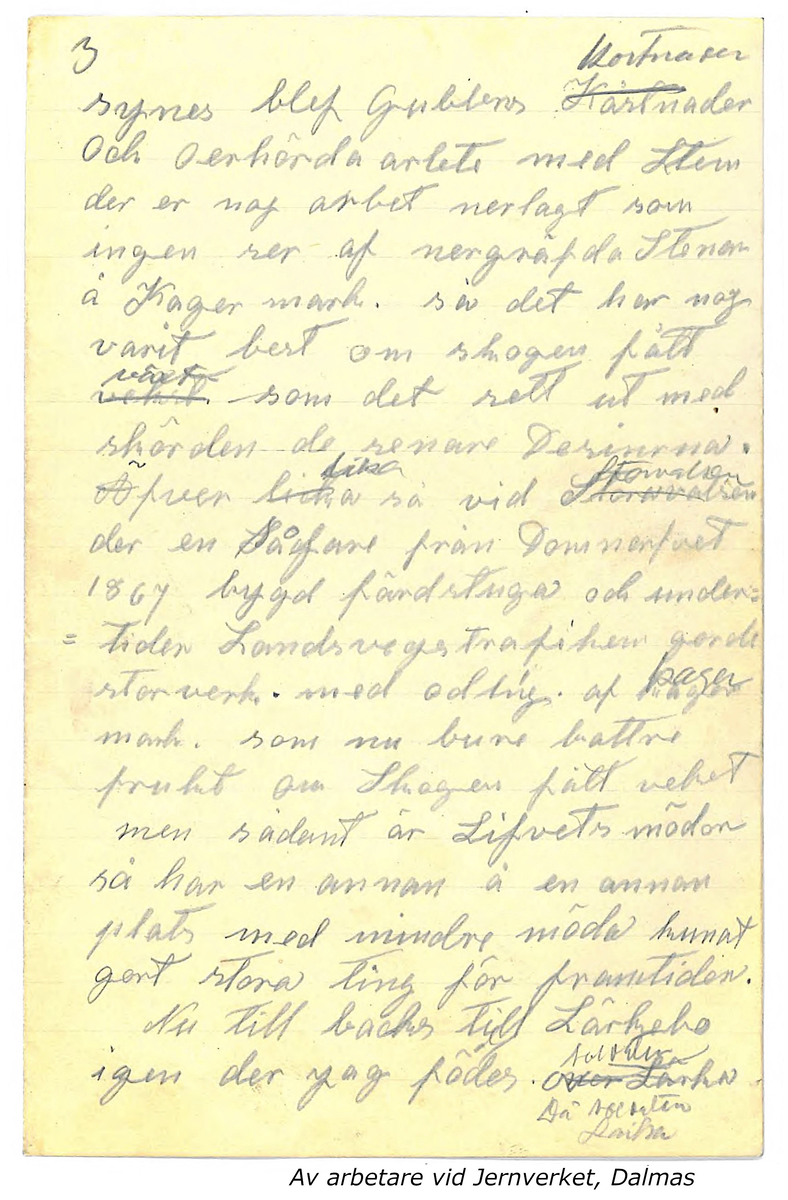 3
Kostnader
synes blef Gubbens Kåstnader
och oerhörda arbete med Sten
der er nog arbet nerlagt som
ingen ser af nergräfda Stenar
å Kager mark. så det har nog
varit best om skogen fått
växt
vekst. som det sett ut med
skörden de senare Desinrna.
lika
Äfver licka så vid Storvalsen
der en Sågfare från Domnerfvet
1867 bygd färdstuga och under=
= tiden Landsvegstrafiken gorde
storverk. med odling. af kager
mark. som nu bure battre
frukt om Skogen fått vekst
men sådant är Lifvets mödor
så har en annan å en annan
plats med mindre möda kunat
gort stora ting för framtiden.
Nu till backs till Lärkebo
igen der yag födes. över Lärka.
Då
Av arbetare vid Jernverket, Dalmas